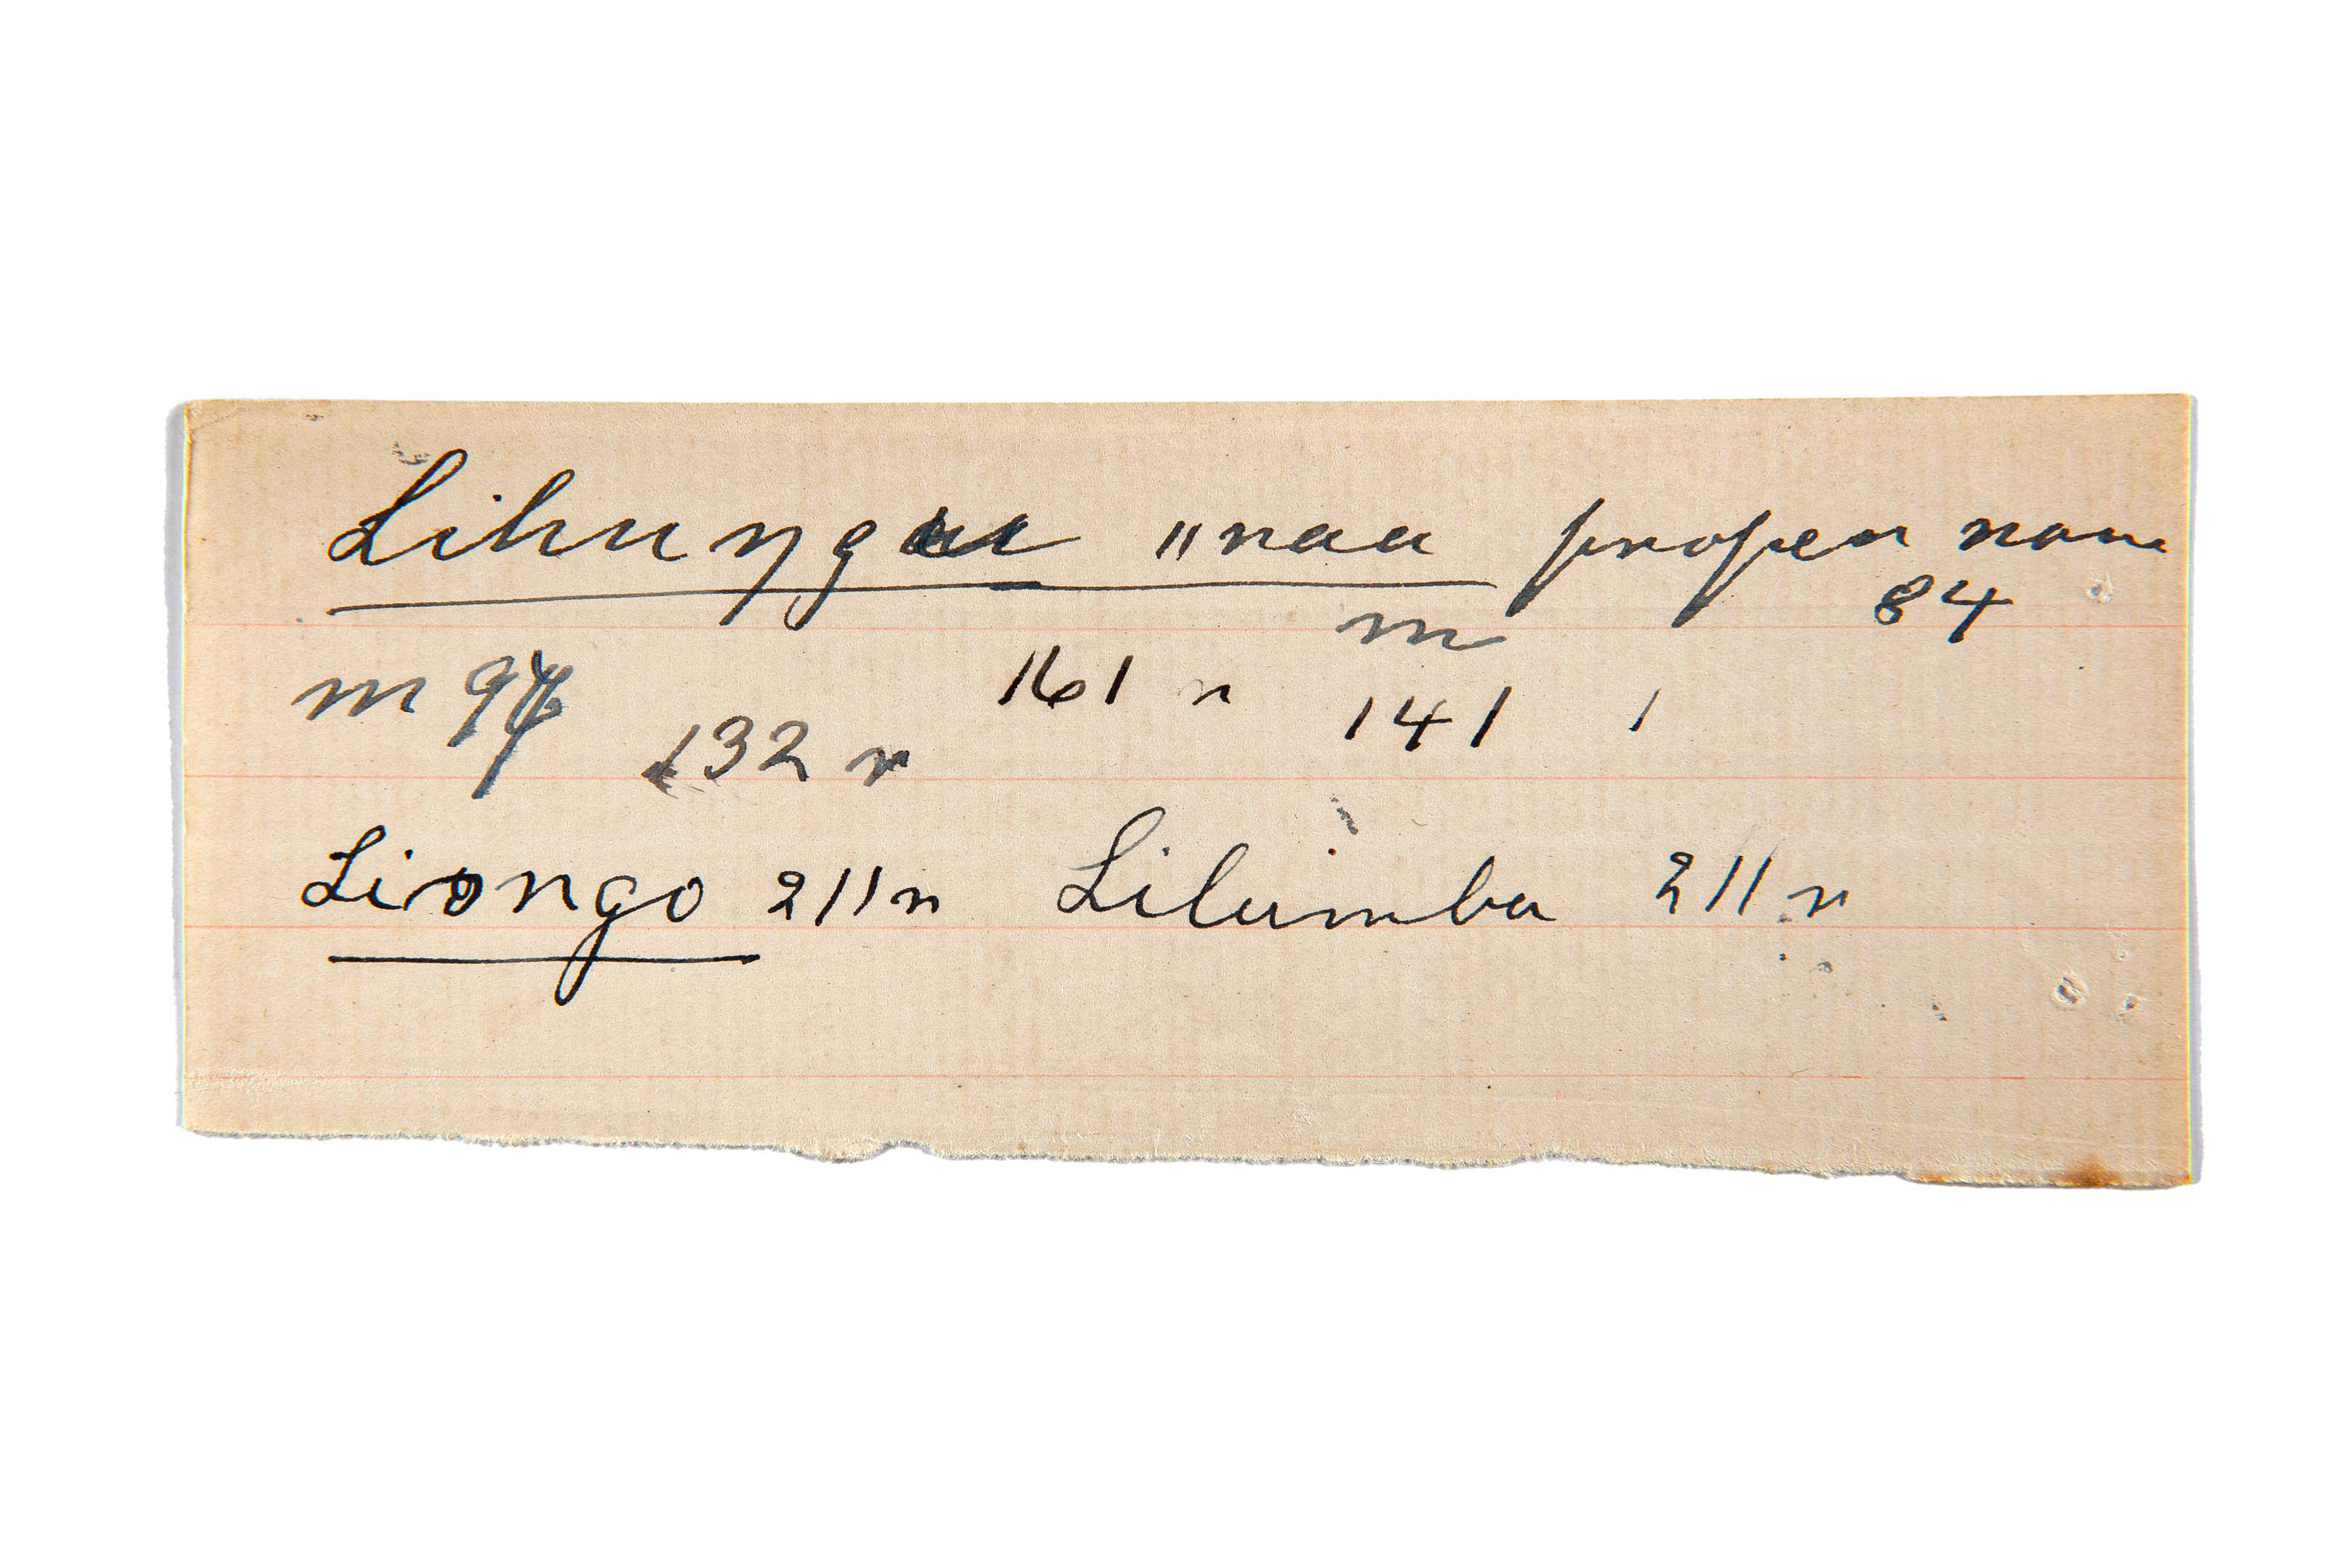 Lihungu "naa proper name
84
m 97 132 n 161 n m 141 1
Liongo 211n Lilumba 211 n